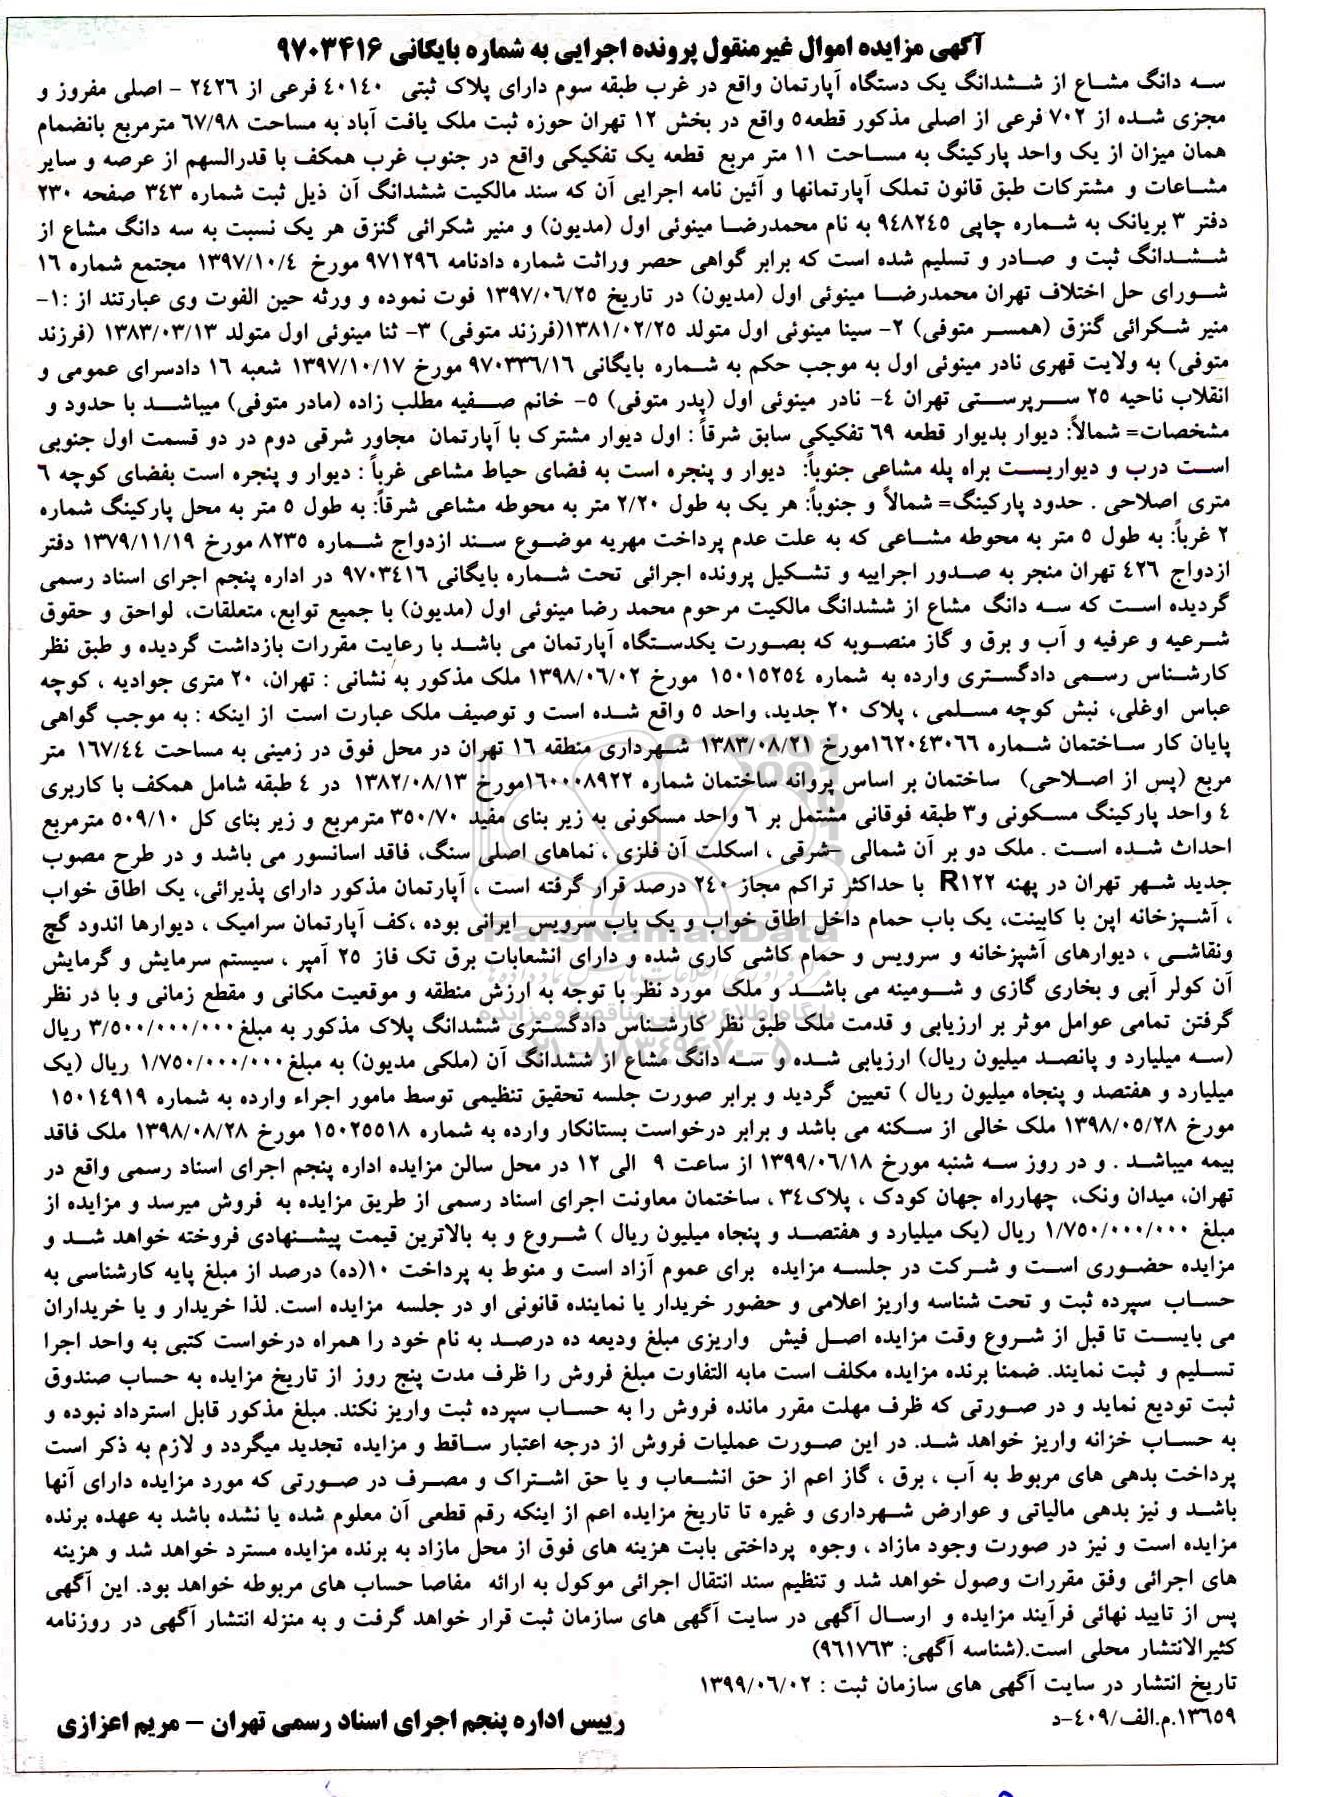 آگهی مزایده اموال غیرمنقول پرونده اجرایی به شماره بایگانی ۹۷۰۳۴۱۶
سه دانگ مشاع از ششدانگ یک دستگاه آپارتمان واقع در غرب طبقه سوم دارای پلاک ثبتی ۴۰۱۴۰ فرعی از ۲۴۲۶ - اصلی مفروز و
مجزی شده از ۷۰۲ فرعی از اصلی مذکور قطعه۵ واقع در بخش ۱۲ تهران حوزه ثبت ملک یافت آباد به مساحت ۶۷/۹۸ مترمربع بانضمام
همان میزان از یک واحد پارکینگ به مساحت ۱۱ متر مربع قطعه یک تفکیکی واقع در جنوب غرب همکف با قدرالسهم از عرصه و سایر
مشاعات و مشترکات طبق قانون تملک آپارتمانها و آئین نامه اجرایی آن که سند مالکیت ششدانگ آن ذیل ثبت شماره ۳۴۳ صفحه ۲۳۰
دفتر ۳ بریانک به شماره چاپی ۹۴۸۲۴۵ به نام محمدرضا مینوئی اول (مدیون) و منیر شکرائی گنزق هر یک نسبت به سه دانگ مشاع از
ششدانگ ثبت و صادر و تسلیم شده است که برابر گواهی حصر وراثت شماره دادنامه ۹۷۱۲۹۶ مورخ ۱۳۹۷/۱۰/۴ مجتمع شماره ۱۶
شورای حل اختلاف تهران محمدرضا مینوئی اول (مدیون) در تاریخ ۱۳۹۷/۰۶/۲۵ فوت نموده و ورثه حین الفوت وی عبارتند از :۱-
منیر شکرائی گنزق (همسر متوفی) ۲- سینا مینوئی اول متولد ۱۳۸۱/۰۲/۲۵(فرزند متوفی) ۳- ثنا مینوئی اول متولد ۱۳۸۳/۰۳/۱۳ (فرزند
متوفی) به ولایت قهری نادر مینوئی اول به موجب حکم به شماره بایگانی ۹۷۰۳۳۶/۱۶ مورخ ۱۳۹۷/۱۰/۱۷ شعبه ۱۶ دادسرای عمومی و
انقلاب ناحیه ۲۵ سرپرستی تهران ۴- نادر مینوئی اول (پدر متوفی) ۵- خانم صفیه مطلب زاده (مادر متوفی) میباشد با حدود و
مشخصات= شمالاً: دیوار بدیوار قطعه ۶۹ تفکیکی سابق شرقاً : اول دیوار مشترک با آپارتمان مجاور شرقی دوم در دو قسمت اول جنوبی
است درب و دیواریست براه پله مشاعی جنوباً: دیوار و پنجره است به فضای حیاط مشاعی غرباً : دیوار و پنجره است بفضای کوچه ۶
متری اصلاحی . حدود پارکینگ= شمالاً و جنوباً: هر یک به طول ۲/۲۰ متر به محوطه مشاعی شرقاً: به طول ۵ متر به محل پارکینگ شماره
۲ غرباً: به طول ۵ متر به محوطه مشاعی که به علت عدم پرداخت مهریه موضوع سند ازدواج شماره ۸۲۳۵ مورخ ۱۳۷۹/۱۱/۱۹ دفتر
ازدواج ۴۲۶ تهران منجر به صدور اجراییه و تشکیل پرونده اجرائی تحت شماره بایگانی ۹۷۰۳۴۱۶ در اداره پنجم اجرای اسناد رسمی
گردیده است که سه دانگ مشاع از ششدانگ مالکیت مرحوم محمد رضا مینوئی اول (مدیون) با جمیع توابع، متعلقات، لواحق و حقوق
شرعیه و عرفیه و آب و برق و گاز منصوبه که بصورت یکدستگاه آپارتمان می باشد با رعایت مقررات بازداشت گردیده و طبق نظر
کارشناس رسمی دادگستری وارده به شماره ۱۵۰۱۵۲۵۴ مورخ ۱۳۹۸/۰۶/۰۲ ملک مذکور به نشانی : تهران، ۲۰ متری جوادیه ، کوچه
عباس اوغلی، نبش کوچه مسلمی ، پلاک ۲۰ جدید، واحد ۵ واقع شده است و توصیف ملک عبارت است از اینکه : به موجب گواهی
پایان کار ساختمان شماره ۱۶۲۰۴۳۰۶۶مورخ ۱۳۸۳/۰۸/۲۱ شهرداری منطقه ۱۶ تهران در محل فوق در زمینی به مساحت ۱۶۷/۴۴ متر
مربع (پس از اصلاحی) ساختمان بر اساس پروانه ساختمان شماره ۱۶۰۰۰۸۹۲۲مورخ ۱۳۸۲/۰۸/۱۳ در ۴ طبقه شامل همکف با کاربری
۴ واحد پارکینگ مسکونی و۳ طبقه فوقانی مشتمل بر ۶ واحد مسکونی به زیر بنای مفید ۳۵۰/۷۰ مترمربع و زیر بنای کل ۵۰۹/۱۰ مترمربع
احداث شده است . ملک دو بر آن شمالی -شرقی ، اسکلت آن فلزی ، نماهای اصلی سنگ، فاقد اسانسور می باشد و در طرح مصوب
جدید شهر تهران در پهنه R۱۲۲ با حداکثر تراکم مجاز ۲۴۰ درصد قرار گرفته است ، آپارتمان مذکور دارای پذیرائی، یک اطاق خواب
، آشپزخانه اپن با کابینت، یک باب حمام داخل اطاق خواب و یک باب سرویس ایرانی بوده ،کف آپارتمان سرامیک ، دیوارها اندود گچ
ونقاشی ، دیوارهای آشپزخانه و سرویس و حمام کاشی کاری شده و دارای انشعابات برق تک فاز ۲۵ آمپر ، سیستم سرمایش و گرمایش
آن کولر آبی و بخاری گازی و شومینه می باشد و ملک مورد نظر با توجه به ارزش منطقه و موقعیت مکانی و مقطع زمانی و با در نظر
گرفتن تمامی عوامل موثر بر ارزیابی و قدمت ملک طبق نظر کارشناس دادگستری ششدانگ پلاک مذکور به مبلغ۳/۵۰۰/۰۰۰/۰۰۰ ریال
(سه میلیارد و پانصد میلیون ریال) ارزیابی شده و سه دانگ مشاع از ششدانگ آن (ملکی مدیون) به مبلغ۱/۷۵۰/۰۰۰/۰۰۰ ریال (یک
میلیارد و هفتصد و پنجاه میلیون ریال ) تعیین گردید و برابر صورت جلسه تحقیق تنظیمی توسط مامور اجراء وارده به شماره ۱۵۰۱۴۹۱۹
مورخ ۱۳۹۸/۰۵/۲۸ ملک خالی از سکنه می باشد و برابر درخواست بستانکار وارده به شماره ۱۵۰۲۵۵۱۸ مورخ ۱۳۹۸/۰۸/۲۸ ملک فاقد
بیمه میباشد . و در روز سه شنبه مورخ ۱۳۹۹/۰۶/۱۸ از ساعت ۹ الی ۱۲ در محل سالن مزایده اداره پنجم اجرای اسناد رسمی واقع در
تهران، میدان ونک، چهارراه جهان کودک ، پلاک۳۴ ، ساختمان معاونت اجرای اسناد رسمی از طریق مزایده به فروش میرسد و مزایده از
مبلغ ۱/۷۵۰/۰۰۰/۰۰۰ ریال (یک میلیارد و هفتصد و پنجاه میلیون ریال ) شروع و به بالاترین قیمت پیشنهادی فروخته خواهد شد و
مزایده حضوری است و شرکت در جلسه مزایده برای عموم آزاد است و منوط به پرداخت ۱۰(ده) درصد از مبلغ پایه کارشناسی به
حساب سپرده ثبت و تحت شناسه واریز اعلامی و حضور خریدار یا نماینده قانونی او در جلسه مزایده است. لذا خریدار و یا خریداران
می بایست تا قبل از شروع وقت مزایده اصل فیش واریزی مبلغ ودیعه ده درصد به نام خود را همراه درخواست کتبی به واحد اجرا
تسلیم و ثبت نمایند. ضمنا برنده مزایده مکلف است مابه التفاوت مبلغ فروش را ظرف مدت پنج روز از تاریخ مزایده به حساب صندوق
ثبت تودیع نماید و در صورتی که ظرف مهلت مقرر مانده فروش را به حساب سپرده ثبت واریز نکند. مبلغ مذکور قابل استرداد نبوده و
به حساب خزانه واریز خواهد شد. در این صورت عملیات فروش از درجه اعتبار ساقط و مزایده تجدید میگردد و لازم به ذکر است
پرداخت بدهی های مربوط به آب ، برق ، گاز اعم از حق انشعاب و یا حق اشتراک و مصرف در صورتی که مورد مزایده دارای آنها
باشد و نیز بدهی مالیاتی و عوارض شهرداری و غیره تا تاریخ مزایده اعم از اینکه رقم قطعی آن معلوم شده یا نشده باشد به عهده برنده
مزایده است و نیز در صورت وجود مازاد ، وجوه پرداختی بابت هزینه های فوق از محل مازاد به برنده مزایده مسترد خواهد شد و هزینه
های اجرائی وفق مقررات وصول خواهد شد و تنظیم سند انتقال اجرائی موکول به ارائه مفاصا حساب های مربوطه خواهد بود. این آگهی
پس از تایید نهائی فرآیند مزایده و ارسال آگهی در سایت آگهی های سازمان ثبت قرار خواهد گرفت و به منزله انتشار آگهی در روزنامه
کثیرالانتشار محلی است.(شناسه آگهی: ۹۶۱۷۶۳)
تاریخ انتشار در سایت آگهی های سازمان ثبت : ۱۳۹۹/۰۶/۰۲
۱۳۶۵۹.م.الف/۴۰۹-د
رییس اداره پنجم اجرای اسناد رسمی تهران - مریم اعزازی
ParsNamadData
پایگاه اطلاع رسانی مناقصه و مزایده
۰۲۱-۸۸۳۴۹۶۷۰-۵